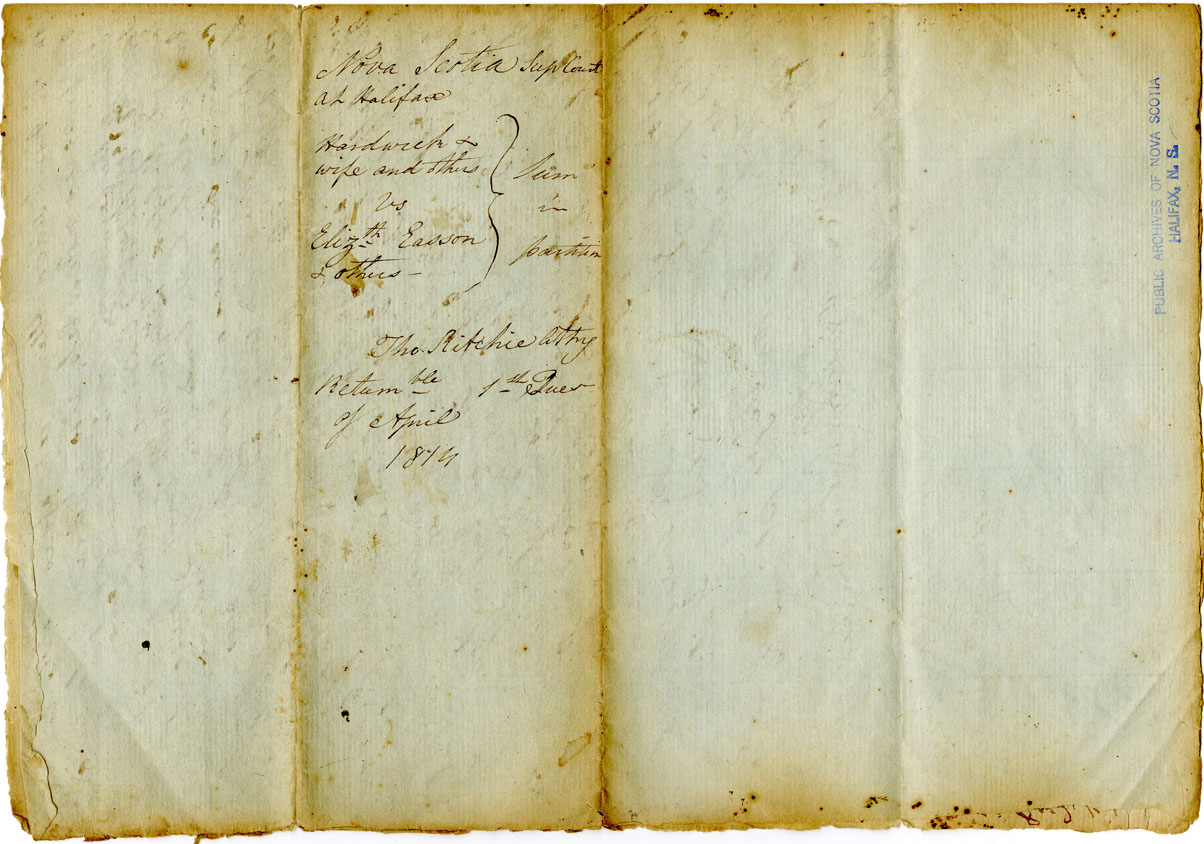 Nova Scotia Sup Court
at Halifax
Hardwick &
wife and others
vs
Elizth Easson
& others –
Sum
in
partition
Tho. Ritchie Atty
Returnble 1st Tues
of April
1814
PUBLIC ARCHIVES OF NOVA SCOTIA
HALIFAX, N. S.